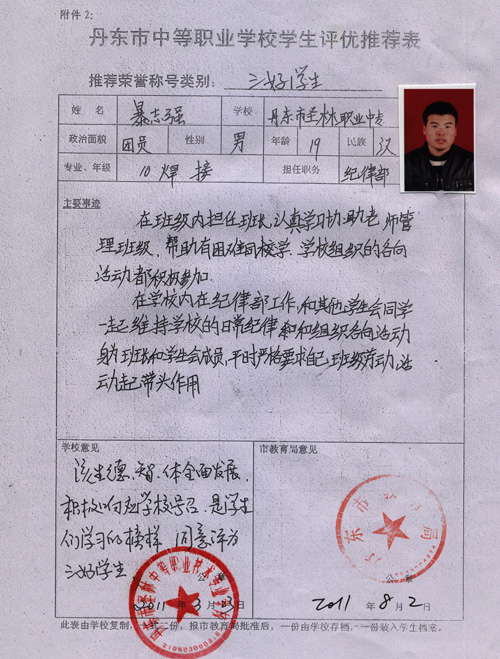 附件2：
丹东市中等职业学校学生评优推荐表
推荐荣誉称号类别： 三好学生
姓 名 暴志强 学校 丹东市圣林职业中专
政治面貌 团员 性别 男 年龄 19 民族 汉
专业、年级 10 焊 接 担任职务 纪律部
主要事迹
在班级内担任班长，认真学习协助老师管
理班级，帮助有困难同校学，学校组织的各向
活动都积极参加．
在学校内在纪律部工作，和其他学生会同学
一起维持学校的日常纪律和和组织各向活动
身为班长和学生会成员，平时严格要求自己，班级劳动，活
动起己带头作用
学校意见
该生德、智、体全面发展，
积极响应学校号召，是学生
们学习的榜样 同意评为
三好学生
公章
2011年3月23日
丹东市圣林中等职业技术专业学校
市教育局意见
丹东市教育局
公章
2011年8月2日
此表由学校复制，一式二份，报市教育局批准后，一份由学校存档，一份装入学生档案。